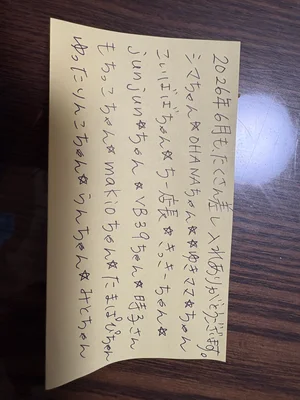 2026年6月もたくさん差し入れありがとうございます。
シマちゃん☆OHANAちゃん☆ゆきママ☆ちゃん
こいばばちゃん☆ちー店長☆きっきーちゃん☆
junjun☆ちゃん☆VB39ちゃん☆時子さん
もちっこちゃん☆makioちゃん☆たまぱぴちゃん
ゆったりんこちゃん☆うんちゃん☆みとちゃん